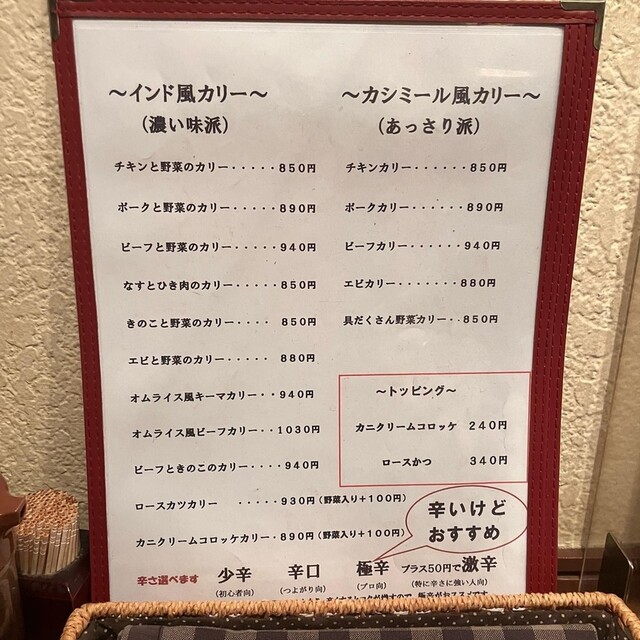 ～インド風カリー～
（濃い味派）
チキンと野菜のカリー・・・・・850円
ポークと野菜のカリー・・・・・890円
ビーフと野菜のカリー・・・・・940円
なすとひき肉のカリー・・・・・850円
きのこと野菜のカリー・・・・ 850円
エビと野菜のカリー・・・・・ 880円
オムライス風キーマカリー・・940円
オムライス風ビーフカリー・・1030円
ビーフときのこのカリー・・・・940円
ロースカツカリー ・・・・・930円（野菜入り＋100円）
カニクリームコロッケカリー・890円（野菜入り＋100円）
～カシミール風カリー～
（あっさり派）
チキンカリー・・・・・・850円
ポークカリー・・・・・・890円
ビーフカリー・・・・・・940円
エビカリー・・・・・・・880円
具だくさん野菜カリー・・850円
～トッピング～
カニクリームコロッケ 240円
ロースかつ 340円
辛いけど
おすすめ
辛さ選べます 少辛 辛口 極辛 プラス50円で激辛
（初心者向） （つよがり向） （プロ向） （特に辛さに強い人向）